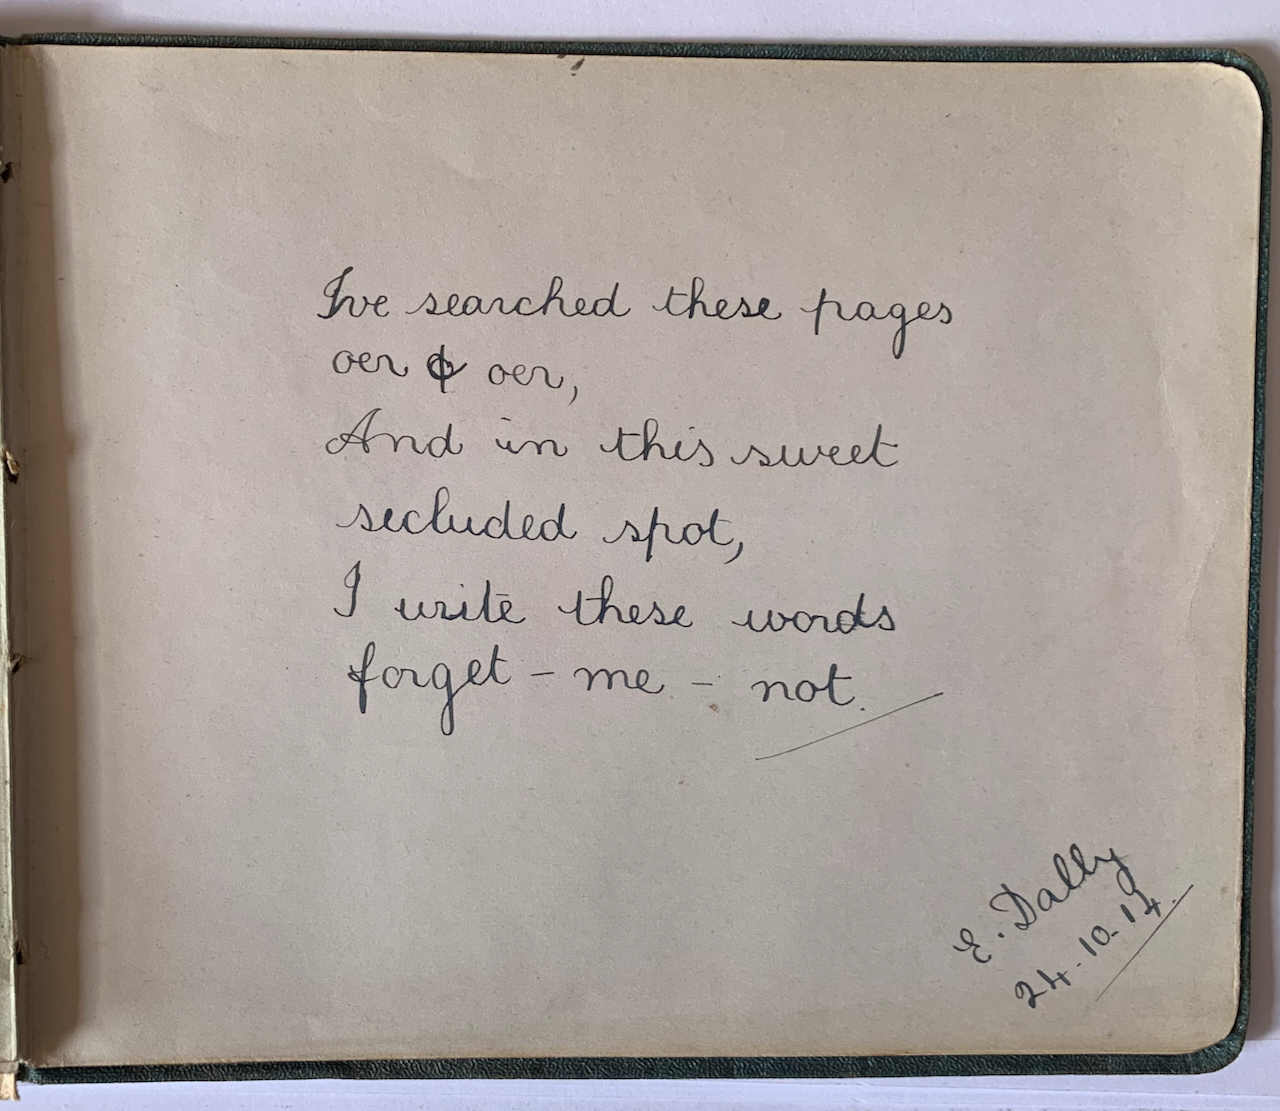 Ive searched these pages
oer & oer,
And in this sweet
secluded spot,
I write these words
forget - me - not.
E. Dally
24.10.14.